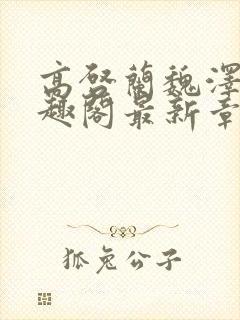 高啓蘭魏澤
趣閣最新章
狐兔公子